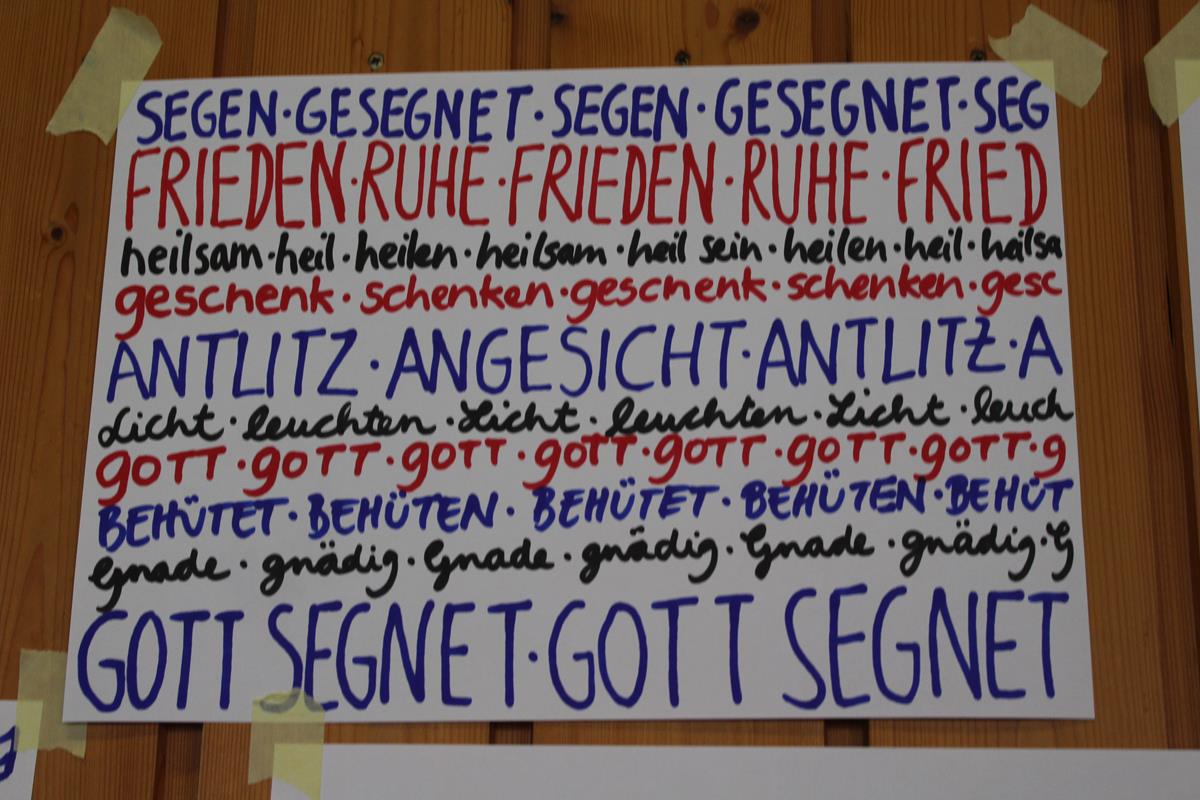 SEGEN·GESEGNET·SEGEN·GESEGNET·SEG
FRIEDEN·RUHE·FRIEDEN·RUHE·FRIED
heilsam·heil·heilen·heilsam·heil sein·heilen·heil·heilsa
geschenk·schenken·geschenk·schenken·gesc
ANTLITZ·ANGESICHT·ANTLITZ·A
Licht·leuchten·Licht·leuchten·Licht·leuch
gOTT·gOTT·gOTT·gOTT·gOTT·gOTT·gOTT·g
BEHÜTET·BEHÜTEN·BEHÜTET·BEHÜTEN·BEHÜT
Gnade·gnädig·Gnade·gnädig·Gnade·gnädig·G
GOTT SEGNET·GOTT SEGNET